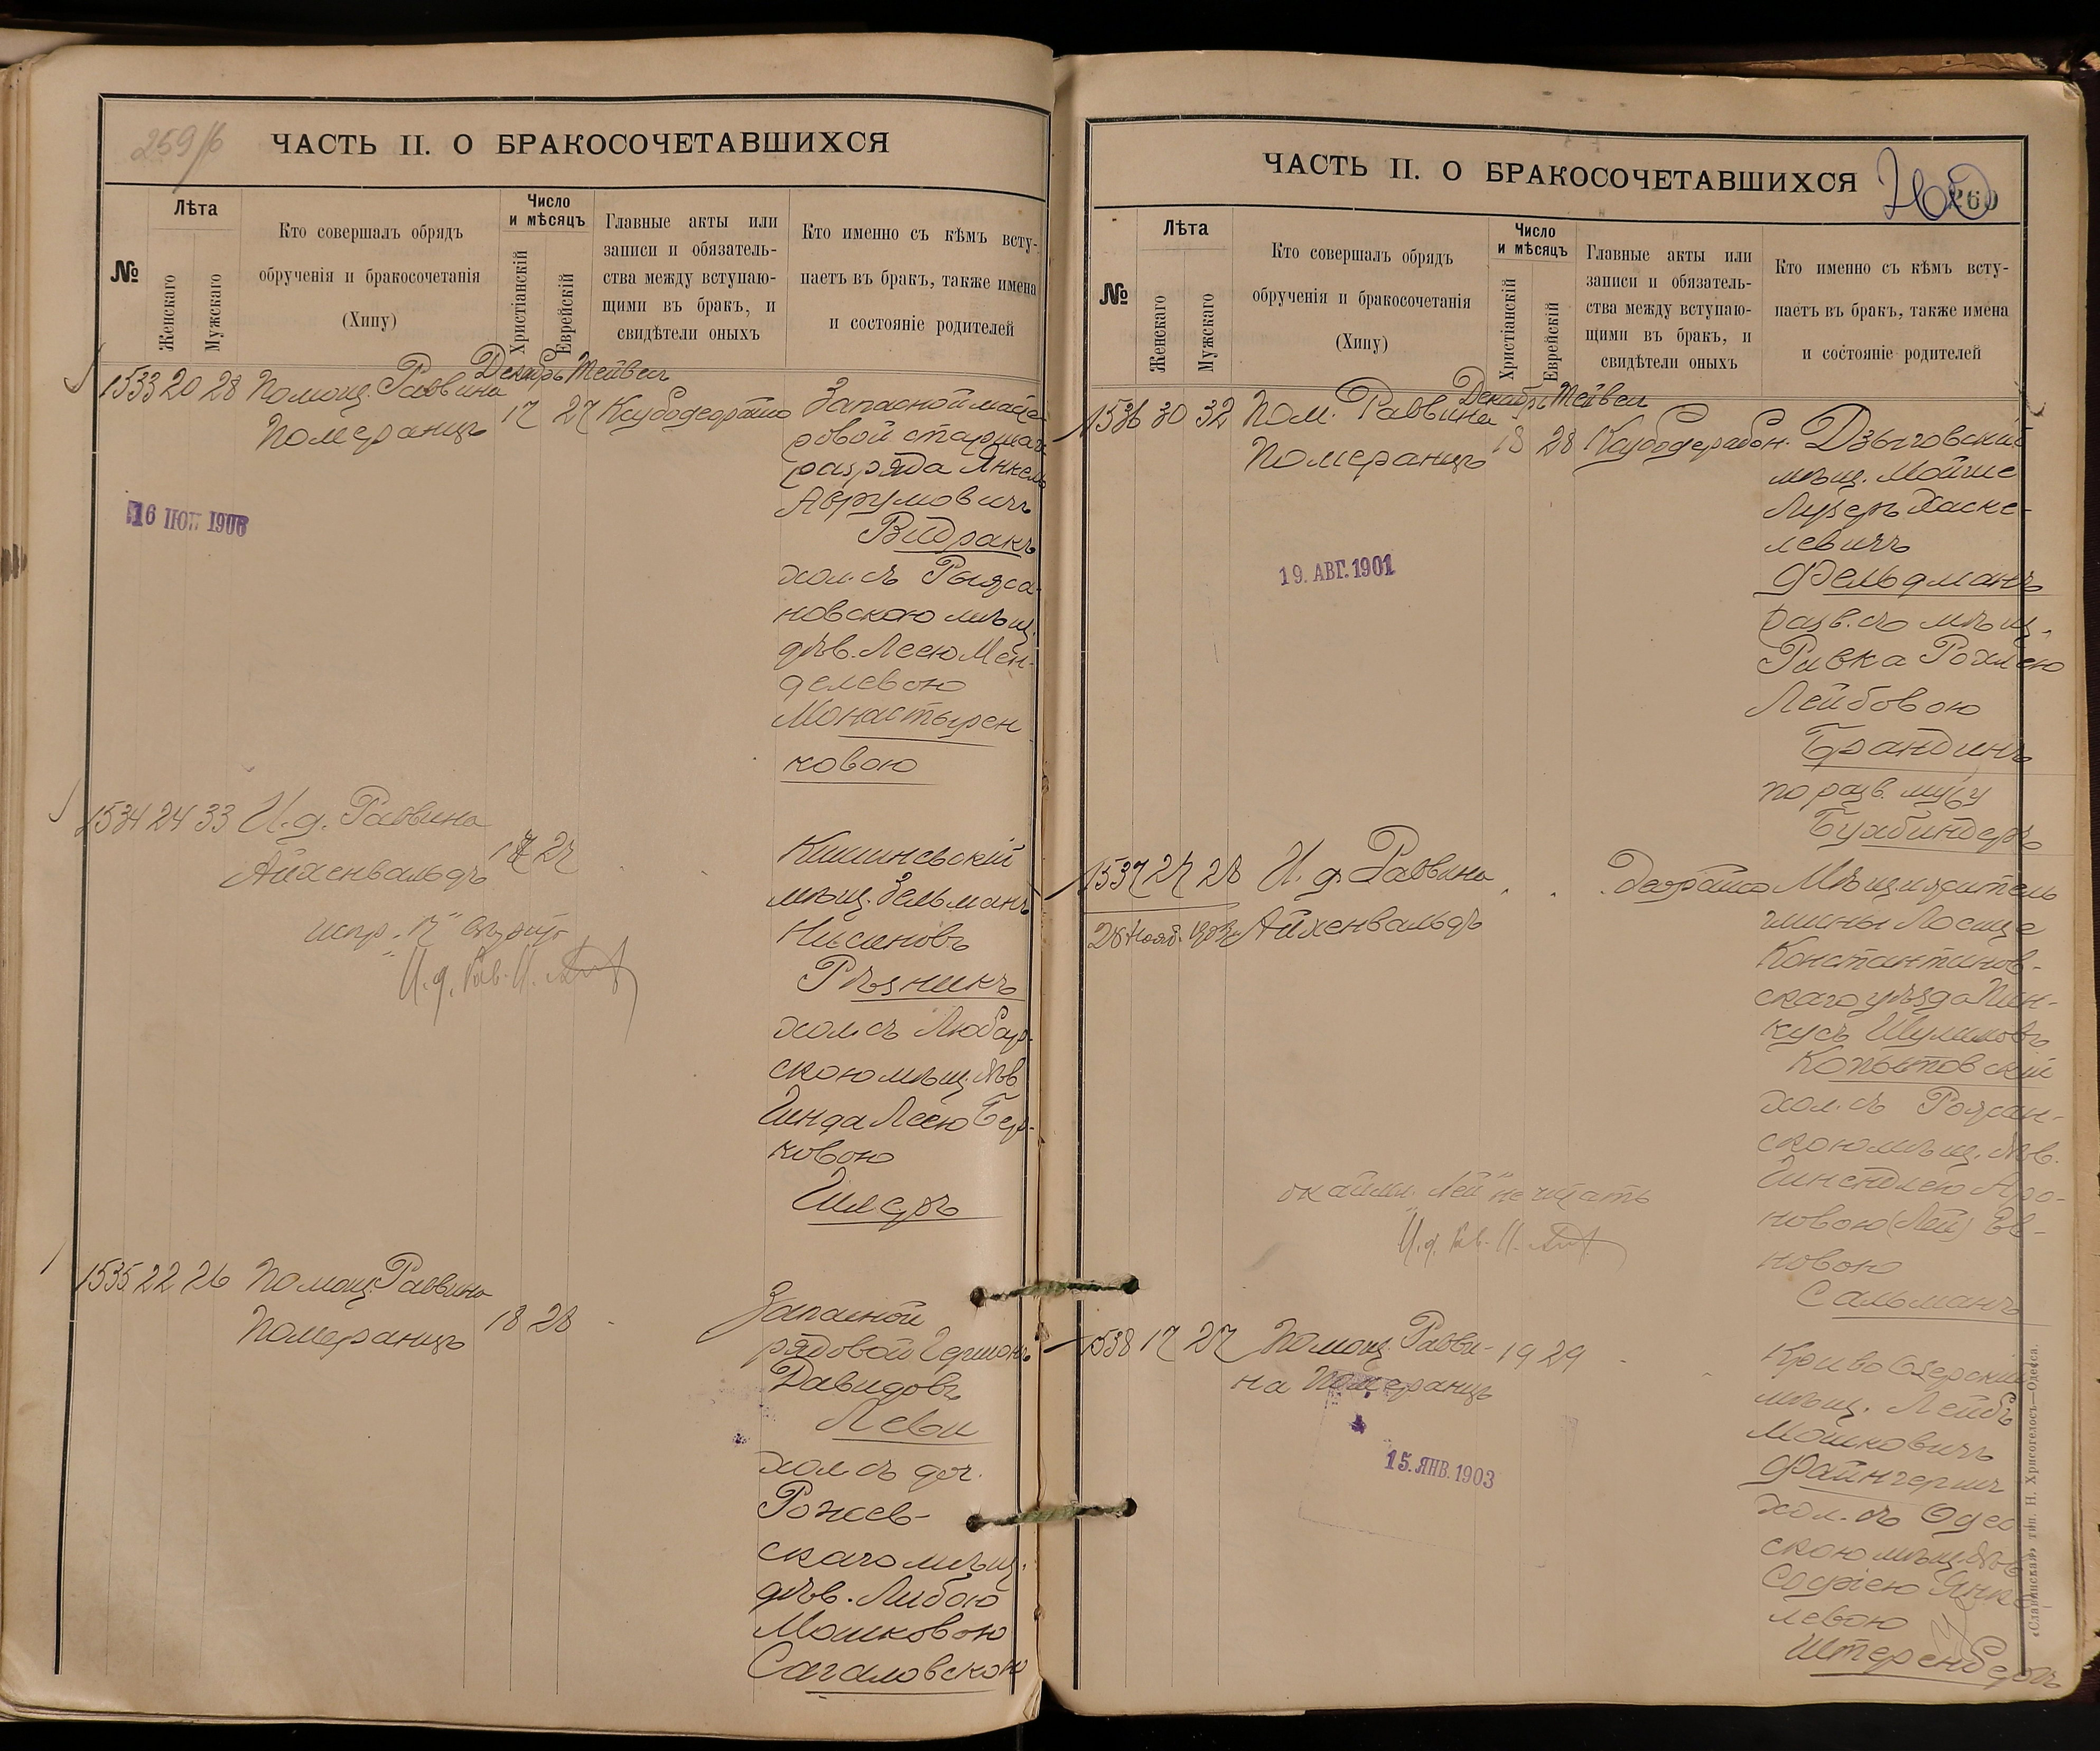 259/б
ЧАСТЬ II. О БРАКОСОЧЕТАВШИХСЯ
№
Лѣта
Женскаго
Мужскаго
Кто совершалъ обрядъ
обрученія и бракосочетанія
(Хипу)
Число
и мѣсяцъ
Христіанскій
Еврейскій
Главные акты или
записи и обязатель-
ства между вступаю-
щими въ бракъ, и
свидѣтели оныхъ
Кто именно съ кѣмъ всту-
паетъ въ бракъ, также имена
и состояніе родителей
Декабрь Тейвеи
1533 20 28 Помощ. Раввина
Померанцъ
17 27
Запасной
старшаго
разряда Янкель
Аврумовичъ
Видракъ
хол. съ
новскою мѣщ.
дѣв. Леею Мен-
делевою
Монастырен
ковою
1534 24 33 И. д. Раввина
Айхенвальдъ
17 27
испр. "17"
И. д. Рав. И.
Кишиневскій
мѣщ. Зельманъ
Нисиновъ
Рѣзникъ
хол. съ Любар-
скою мѣщ. дѣв
Гинда Леею Бер-
ковою
Гилеръ
1535 22 26 Помощ. Раввина
Померанцъ
18 28
Запасной
рядовой Гершонъ
Давидовъ
Леви
хол. съ доч.
Рожев-
скаго мѣщ.
дѣв. Либою
Мошковою
Сагаловскою
260
260
ЧАСТЬ II. О БРАКОСОЧЕТАВШИХСЯ
№
Лѣта
Женскаго
Мужскаго
Кто совершалъ обрядъ
обрученія и бракосочетанія
(Хипу)
Число
и мѣсяцъ
Христіанскій
Еврейскій
Главные акты или
записи и обязатель-
ства между вступаю-
щими въ бракъ, и
свидѣтели оныхъ
Кто именно съ кѣмъ всту-
паетъ въ бракъ, также имена
и состояніе родителей
Декабрь Тейвеи
1536 30 32 Пом. Раввина
Померанцъ
18 28
19. АВГ. 1901
Дзыговскій
мѣщ. Мойше
Лузеръ Хаске-
левичъ
Фельдманъ
разв. съ мѣщ.
Ривка Рохлею
Лейбовою
Брандинъ
по разв. мужу
Бухбиндеръ
1537 27 28 И. д. Раввина
Айхенвальдъ
Константинов-
скаго уѣзда Пин-
кусъ Шулимовъ
Копытовскій
хол. съ
скою мѣщ. дѣв.
Аро-
новою (Лей)
новою
Сальманъ
"Лей" не читать
И. д. Рав. И.
1538 17 27 Помощ. Равви-
на Померанцъ
19 29
15. ЯНВ. 1903
Криво Озерскій
мѣщ. Лейбъ
Мошковичъ
Файнгершъ
хол. съ Одес
скою мѣщ. дѣв
Софіею Янке
левою
Штеренбергъ
«Славянская» тип. Н. Хрисогелосъ—Одесса.